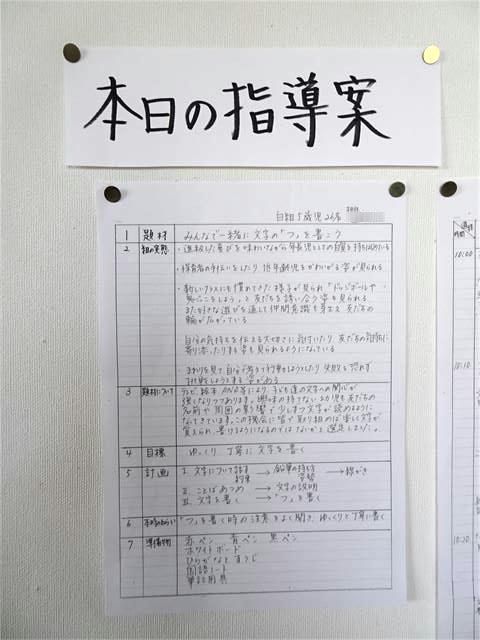 本日の指導案
白組5歳児26名
1 題材 みんなで一緒に文字の「つ」を書こう
2 組の実態 ・進級した喜びを味わいながら年長児としての自覚を持ち
・保育者の手伝いをしたり、低年齢児をかわいがる姿が見られる
・新しいクラスにも慣れてきた様子が見られ「ドッジボールや
しよう」と友だちを誘い合う姿も見られる
また好きな遊びを通して仲間意識も芽生え友だちの
輪が広がっている
自分の気持ちを伝える大切さに気付いたり友だちの気持ちに
寄り添ったりする姿も見られるようになっている
まわりを見て自分で考えて行動しようとしたり失敗を恐れず
挑戦しようとする姿がある
3 題材について テレビ、絵本、などにより、子ども達の文字への関心が
強くなりつつあります。興味の持てない子も友だちの
名前や周囲の影響で少しずつ文字が読めるように
なってきています。この機会に皆で取り組めば楽しく文字が
覚えられ、書けるようになるのではないかと選定しました。
4 目標 ゆっくり、丁寧に文字を書く
5 計画 I. 文字について話す → 鉛筆の持ち方 → 線がき
約束 姿勢
II. ことばあつめ → 文字の説明
III. 文字を書く → 「つ」を書く
6 本時のねらい 「つ」を書く時の注意をよく聞き、ゆっくりと丁寧に書く
7 準備物 赤ペン 青ペン 黒ペン
ホワイトボード
ひらがなとすうじ
国語ノート
筆記用具
時間
10:00
10:10
10:20